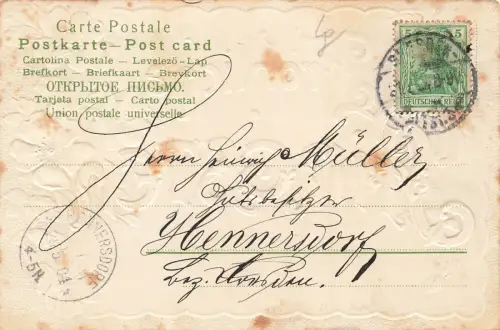 Carte Postale
Postkarte – Post card
Cartolina Postale – Levelező-Lap
Brefkort – Briefkaart – Brevkort
ОТКРЫТОЕ ПИСЬМО.
Tarjeta postal – Carto postal
Union postale universelle.
5 5
DEUTSCHES REICH
Herrn Heinrich Müller
Gutsbesitzer
Hennersdorf
Bez. Dresden.
NERSDORF
4-5N